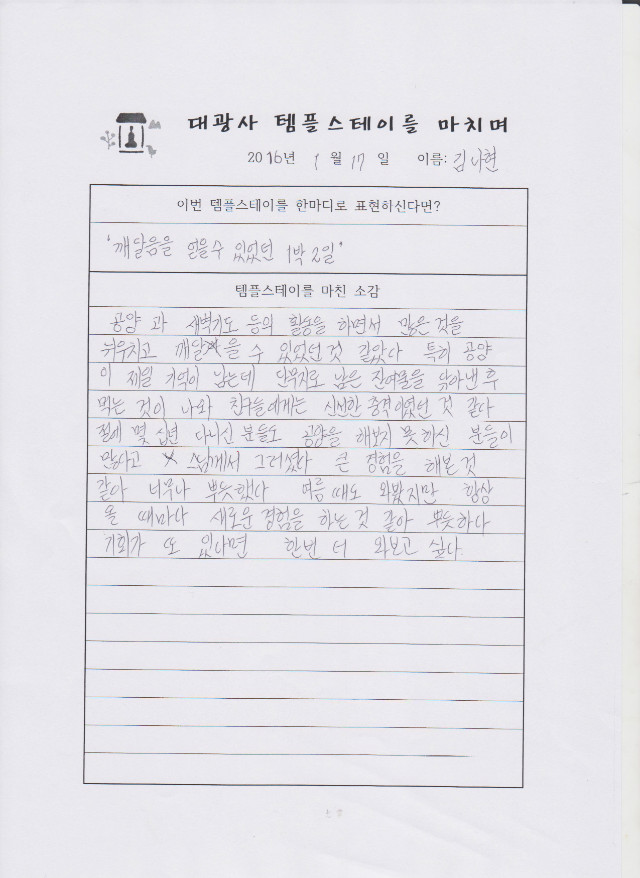 대광사 템플스테이를 마치며
2016년 1월 17일 이름: 김나현
이번 템플스테이를 한마디로 표현하신다면?
'깨달음을 얻을 수 있었던 1박 2일'
템플스테이를 마친 소감
공양 과 새벽기도 등의 활동을 하면서 많은 것을
뉘우치고 깨달을 수 있었던 것 같았다 특히 공양
이 제일 기억이 남는데 단무지로 남은 잔여물을 닦아낸 후
먹는 것이 나와 친구들에게는 신선한 충격이였던 것 같다
절에 몇 십년 다니신 분들도 공양을 해보지 못하신 분들이
많다고 스님께서 그러셨다 큰 경험을 해본 것
같아 너무나 뿌듯했다 여름 때도 와봤지만 항상
올 때마다 새로운 경험을 하는 것 같아 뿌듯하다
기회가 또 있다면 한번 더 와보고 싶다.